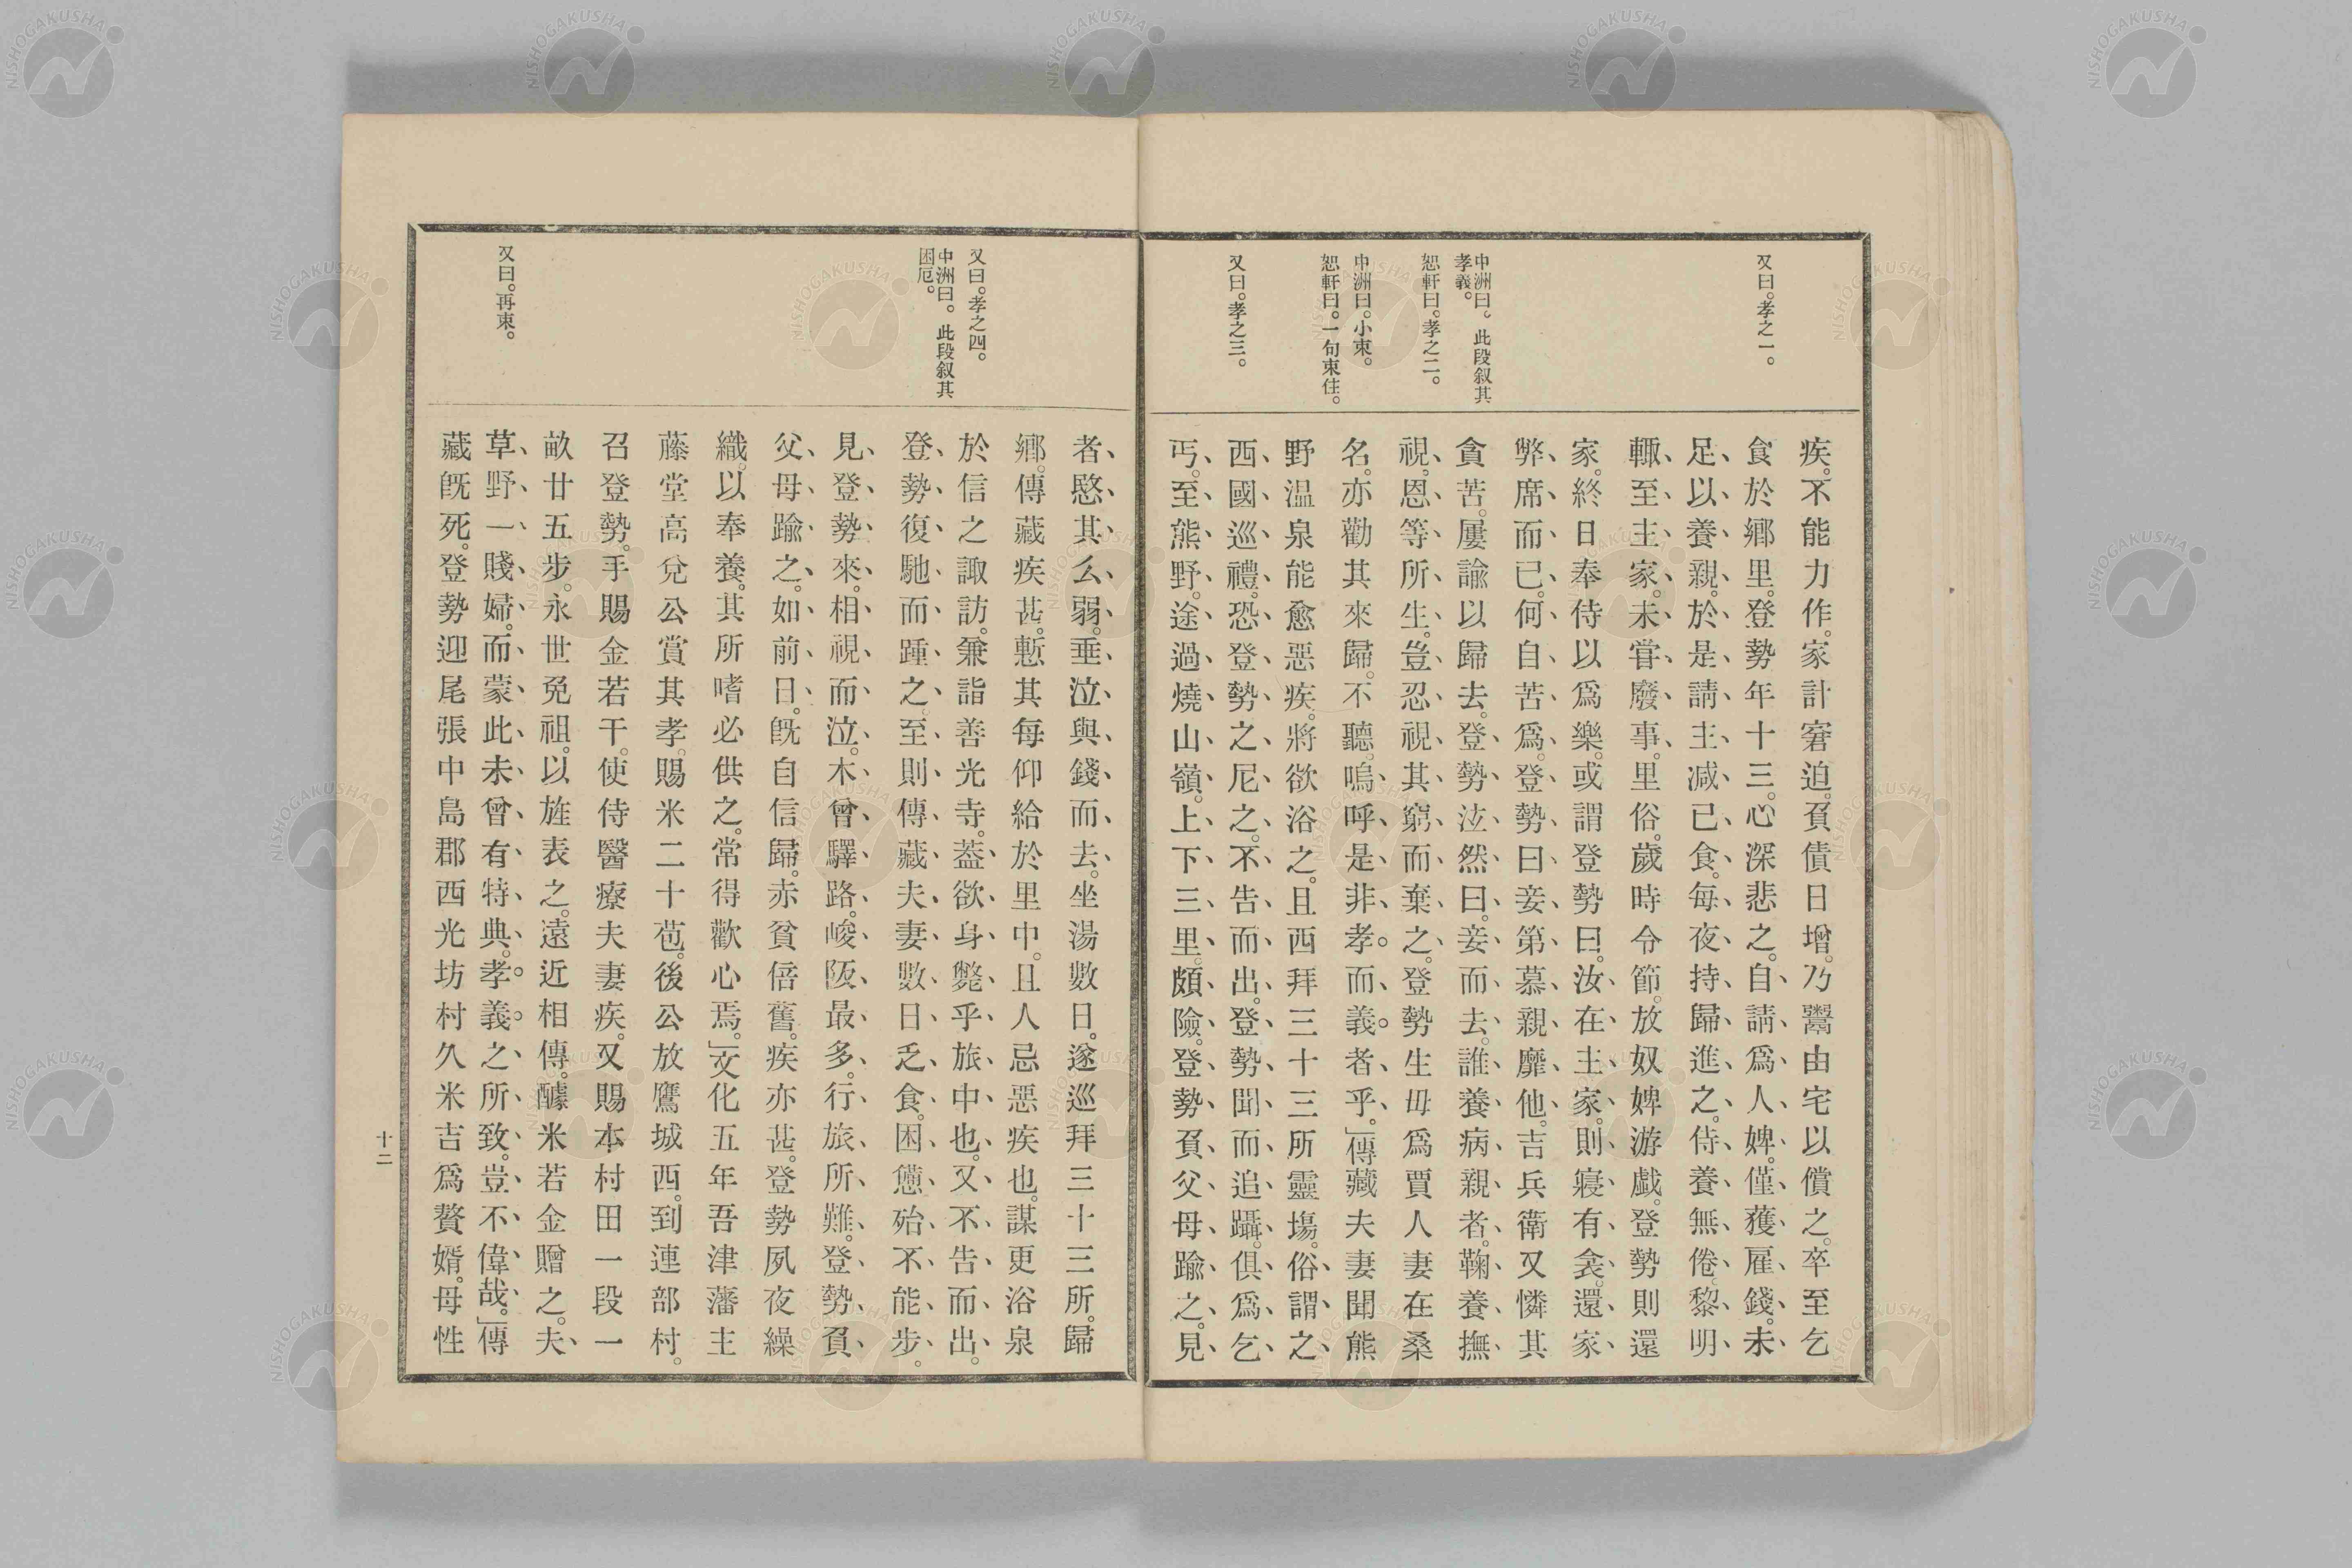 又曰。孝之一。
中洲曰。此段叙其
孝義。
恕軒曰。孝之二。
中洲曰。小束。
恕軒曰。一句束住。
又曰。孝之三。
疾。不能力作。家計窘迫。負債日增。乃鬻由宅以償之。卒至乞
食於鄉里。登勢年十三。心深悲之。自請爲人婢。僅獲雇錢。未
足以養親。於是請主減已食。每夜持歸進之。侍養無倦。黎明
輙至主家。未甞廢事。里俗。歲時令節。放奴婢游戯。登勢則還
家。終日奉侍以爲樂。或謂登勢曰。汝在主家。則寢有衾。還家
弊席而已。何自苦爲。登勢曰。妾第慕親靡他。吉兵衛又憐其
貪苦。屢諭以歸去。登勢泣然曰。妾而去。誰養病親者。鞠養撫
視。恩等所生。豈忍視其窮而棄之。登勢生毋爲賈人妻在桑
名。亦勸其來歸。不聽。嗚呼是非孝而義者乎。」傳藏夫妻聞熊
野温泉能愈惡疾。將欲浴之。且西拜三十三所靈塲。俗謂之
西國巡禮。恐登勢之尼之。不告而出。登勢聞而追躡。俱爲乞
丐。至熊野。途過燒山嶺。上下三里。頗險。登勢負父母踰之。見
又曰。孝之四。
中洲曰。此段叙其
困厄。
又曰。再束。
者愍其么弱。垂泣與錢而去。坐湯數日。遂巡拜三十三所。歸
鄉。傳藏疾甚。慙其每仰給於里中。且人忌惡疾也。謀更浴泉
於信之諏訪。兼詣善光寺。葢欲身斃乎旅中也。又不告而出。
登勢復馳而踵之。至則傳藏夫妻數日乏食。困憊殆不能步。
見登勢來。相視而泣。木曾驛路。峻阪最多。行旅所難。登勢負
父母踰之。如前日。旣自信歸。赤貧倍舊。疾亦甚。登勢夙夜繰
織。以奉養。其所嗜必供之。常得歡心焉。」文化五年吾津藩主
藤堂高兌公賞其孝。賜米二十苞。後公放鷹城西。到連部村。
召登勢。手賜金若干。使侍醫療夫妻疾。又賜本村田一段一
畝廿五步。永世免祖。以旌表之。遠近相傳。醵米若金贈之。夫
草野一賤婦。而蒙此未曾有特典。孝義之所致。豈不偉哉。」傳
藏旣死。登勢迎尾張中島郡西光坊村久米吉爲贅婿。母性
十二